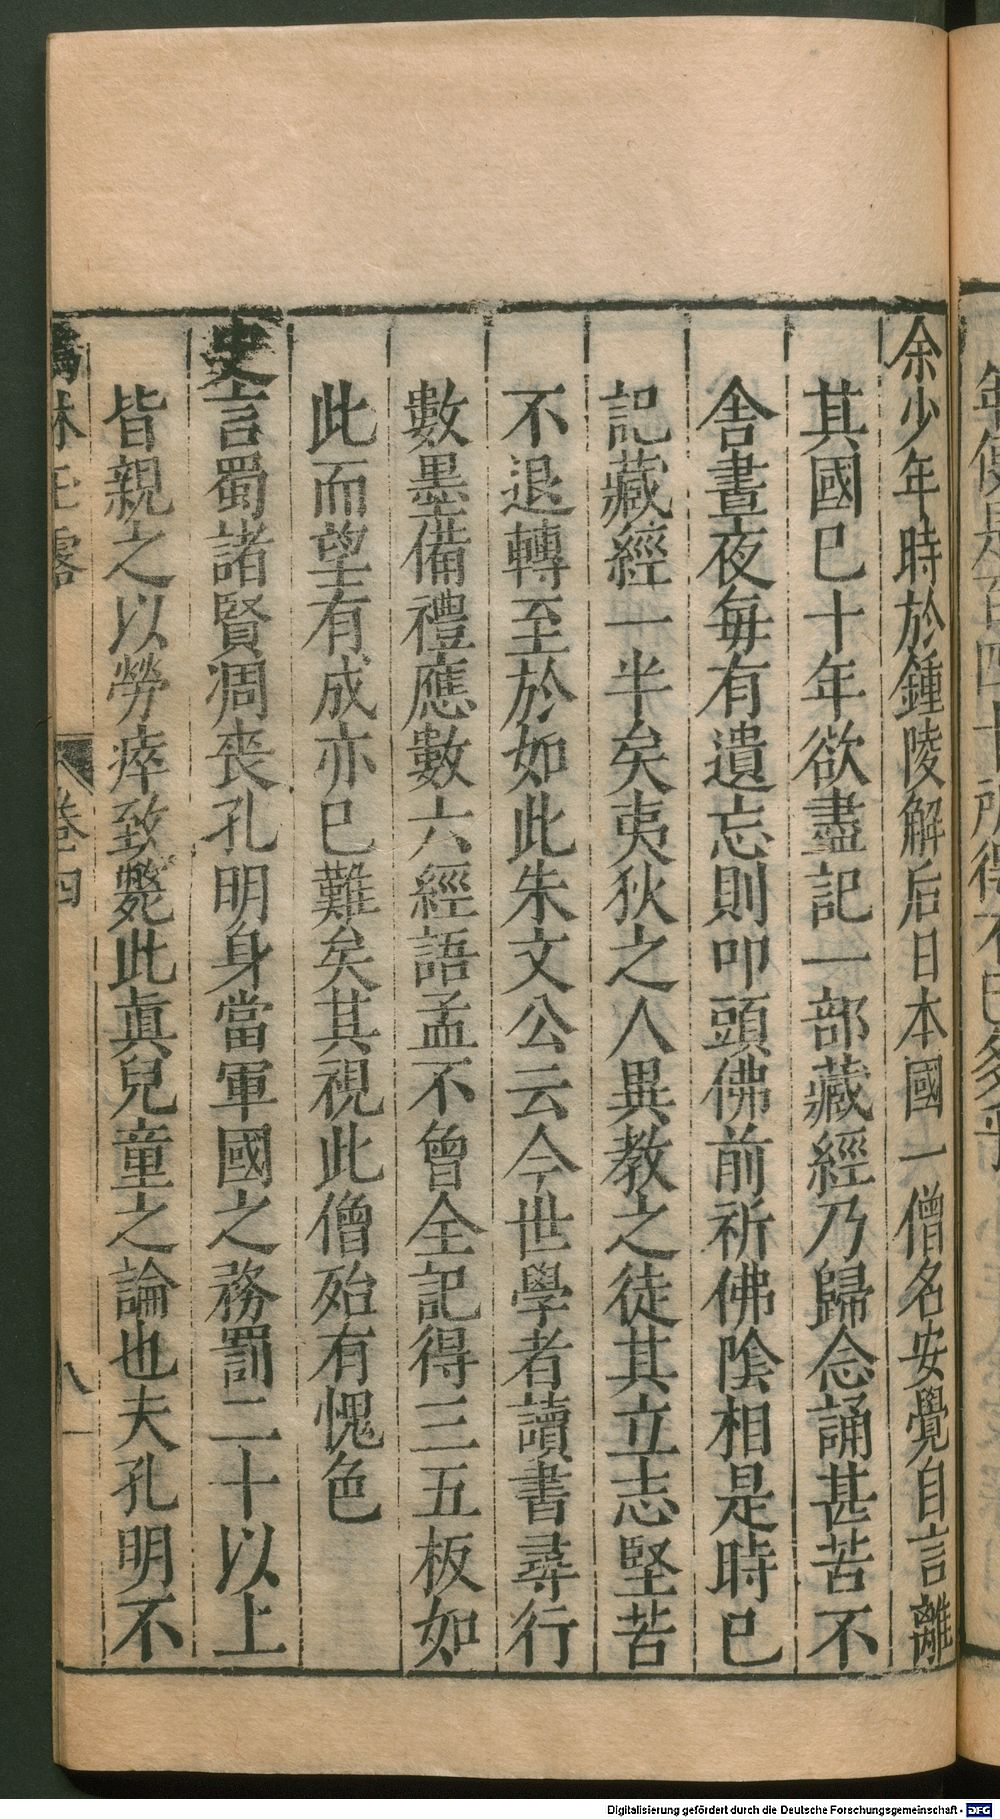 余少年時於鍾陵觧后日本國一僧名安覺自言離
其國巳十年欲盡記一部藏經乃歸念誦甚苦不
舍晝夜每有遺忘則叩頭佛前祈佛陰相是時巳
記藏經一半矣夷狄之人異教之徒其立志堅苦
不退轉至於如此朱文公云今世學者讀書尋行
數墨備禮應數六經語孟不曾全記得三五板如
此而望有成亦巳難矣其視此僧殆有愧色
史言蜀諸賢凋喪孔明身當軍國之務罰二十以上
皆親之以勞瘁致斃此眞兒童之論也夫孔明不
林玉露
卷四
八
Digitalisierung gefördert durch die Deutsche Forschungsgemeinschaft - DFG